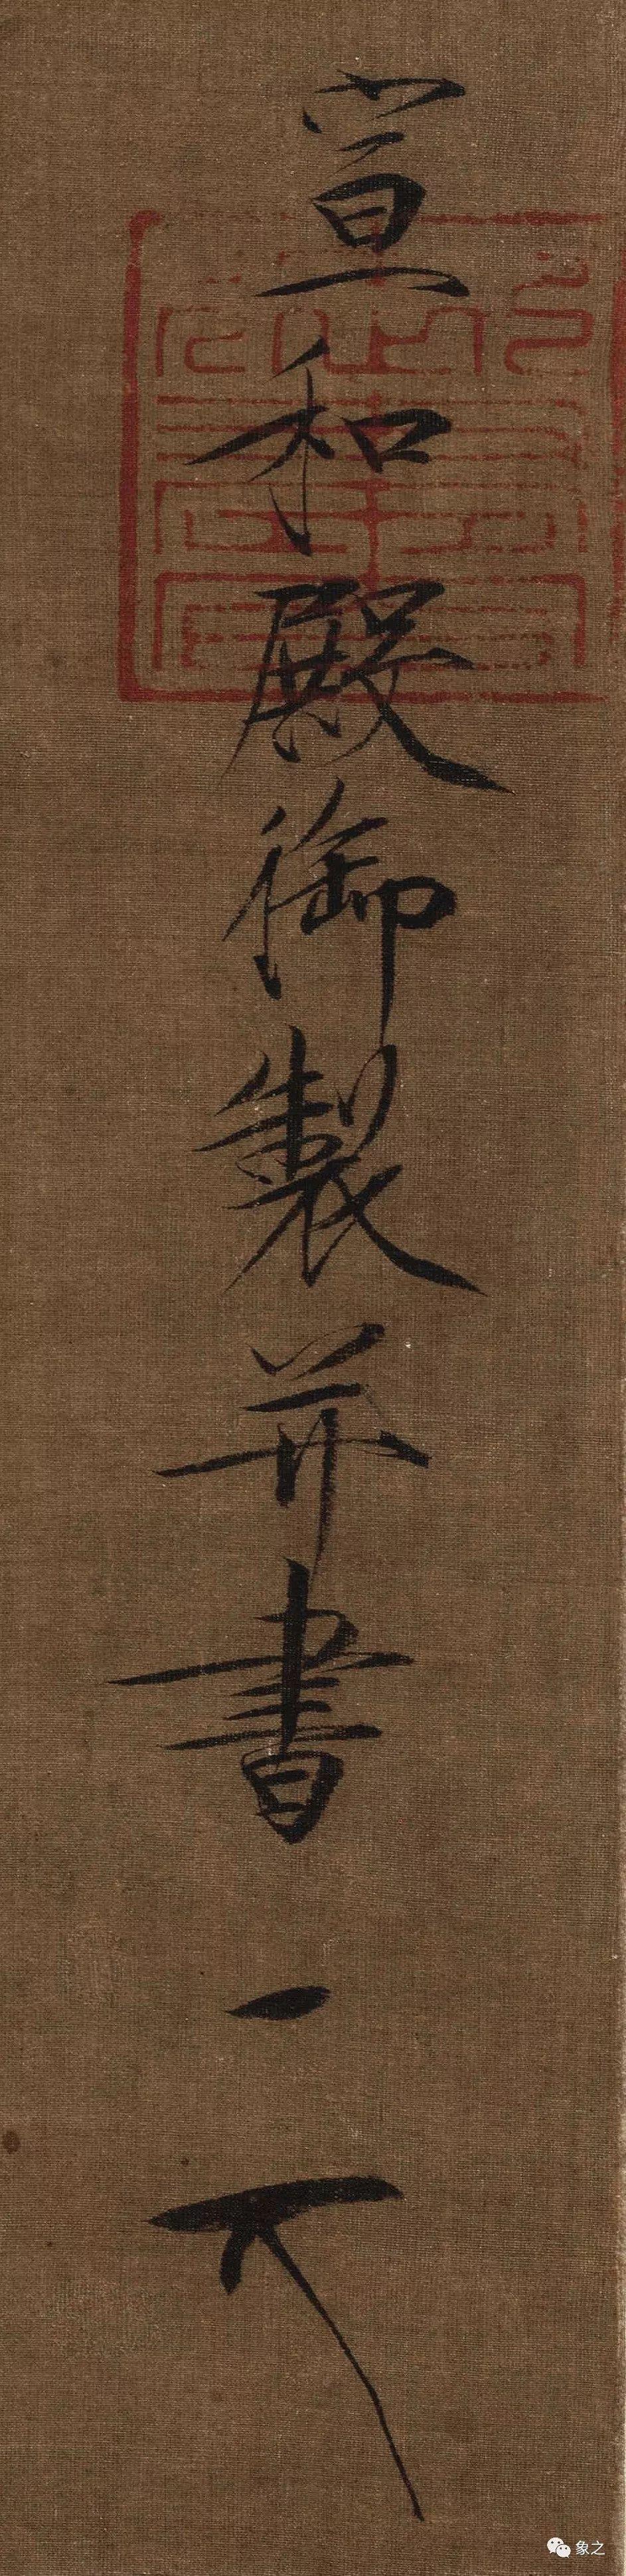 宣和殿御製并書
象之